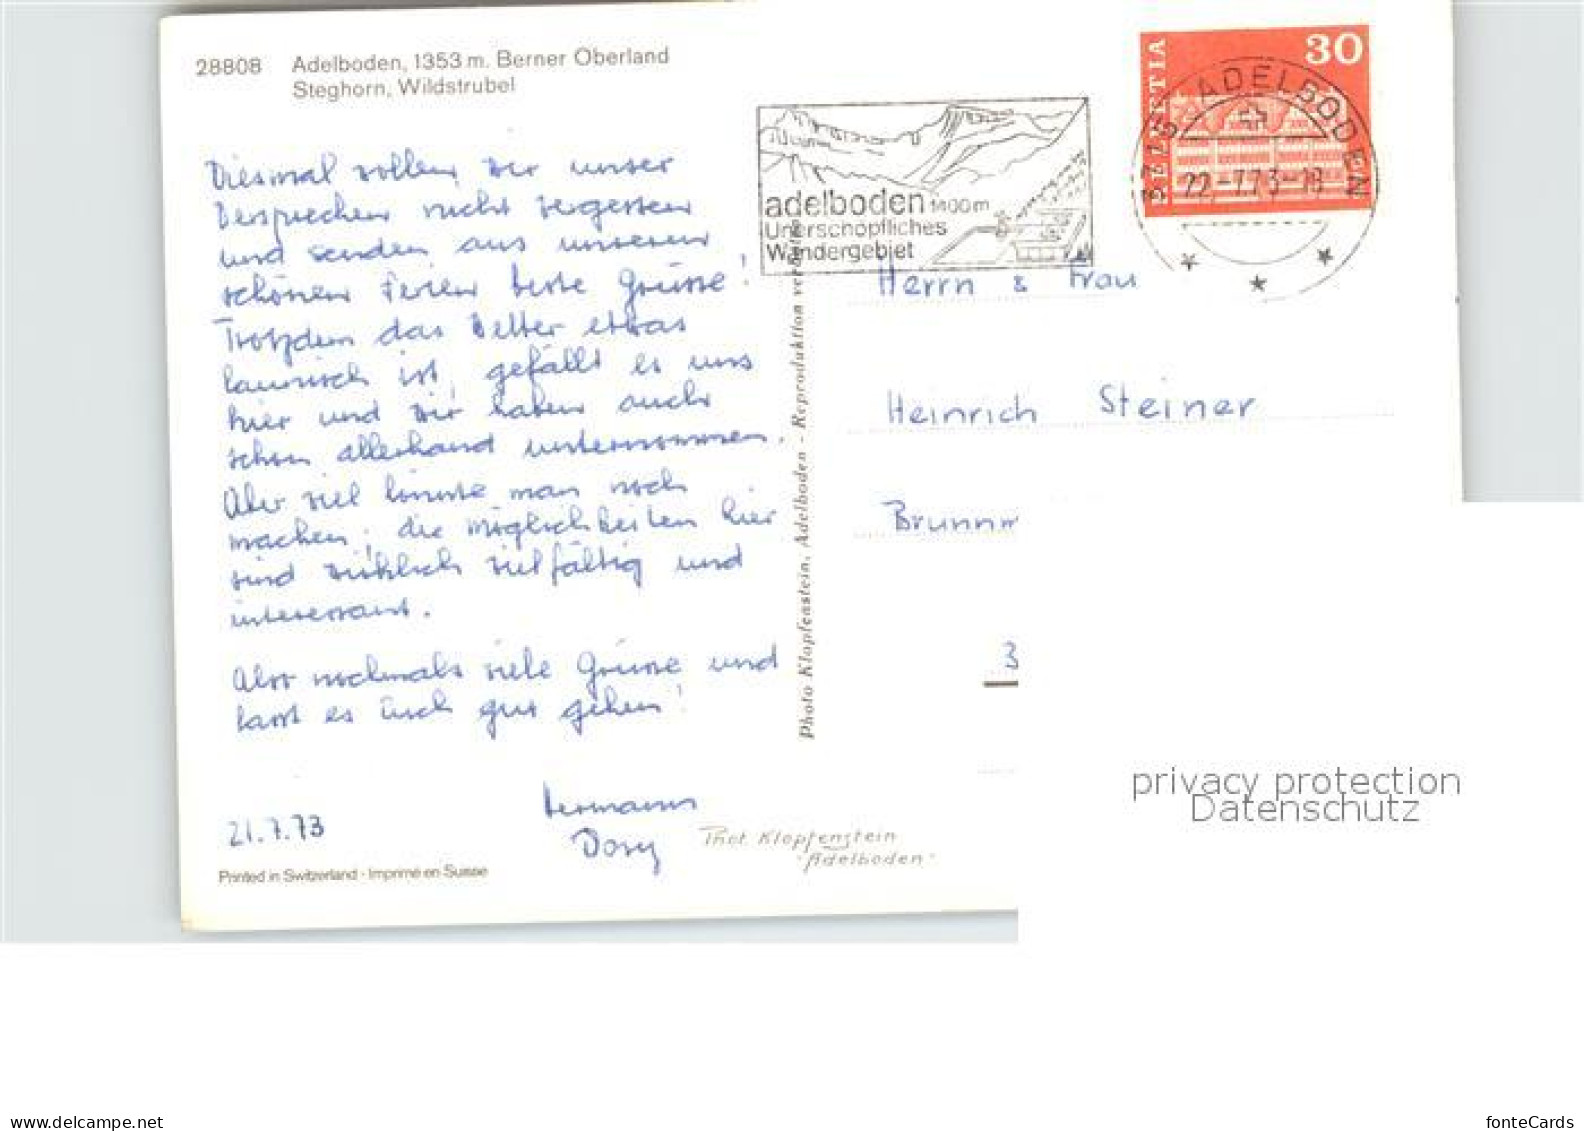 28808 Adelboden, 1353 m. Berner Oberland
Steghorn, Wildstrubel
Diesmal wollen wir unser
Versprechen nicht vergessen
und senden aus unseren
schönen Ferien beste Grüsse!
Trotzdem das Wetter etwas
launisch ist, gefällt es uns
hier und wir haben auch
schon allerhand unternommen.
Aber viel könnte man noch
machen; die Möglichkeiten hier
sind wirklich vielfältig und
interessant.
Also nochmals viele Grüsse und
lasst es Euch gut gehen!
21.7.73
Hermann
Dory
Phot. Klopfenstein
"Adelboden"
Printed in Switzerland - Imprimé en Suisse
Photo Klopfenstein, Adelboden - Reproduktion verboten
adelboden 1400m
Unerschöpfliches
Wandergebiet
HELVETIA
30
3715 ADELBODEN
22.-7.73-18
Herrn & Frau
Heinrich Steiner
Brunnm
3
privacy protection
Datenschutz
www.delcampe.net
fonteCards